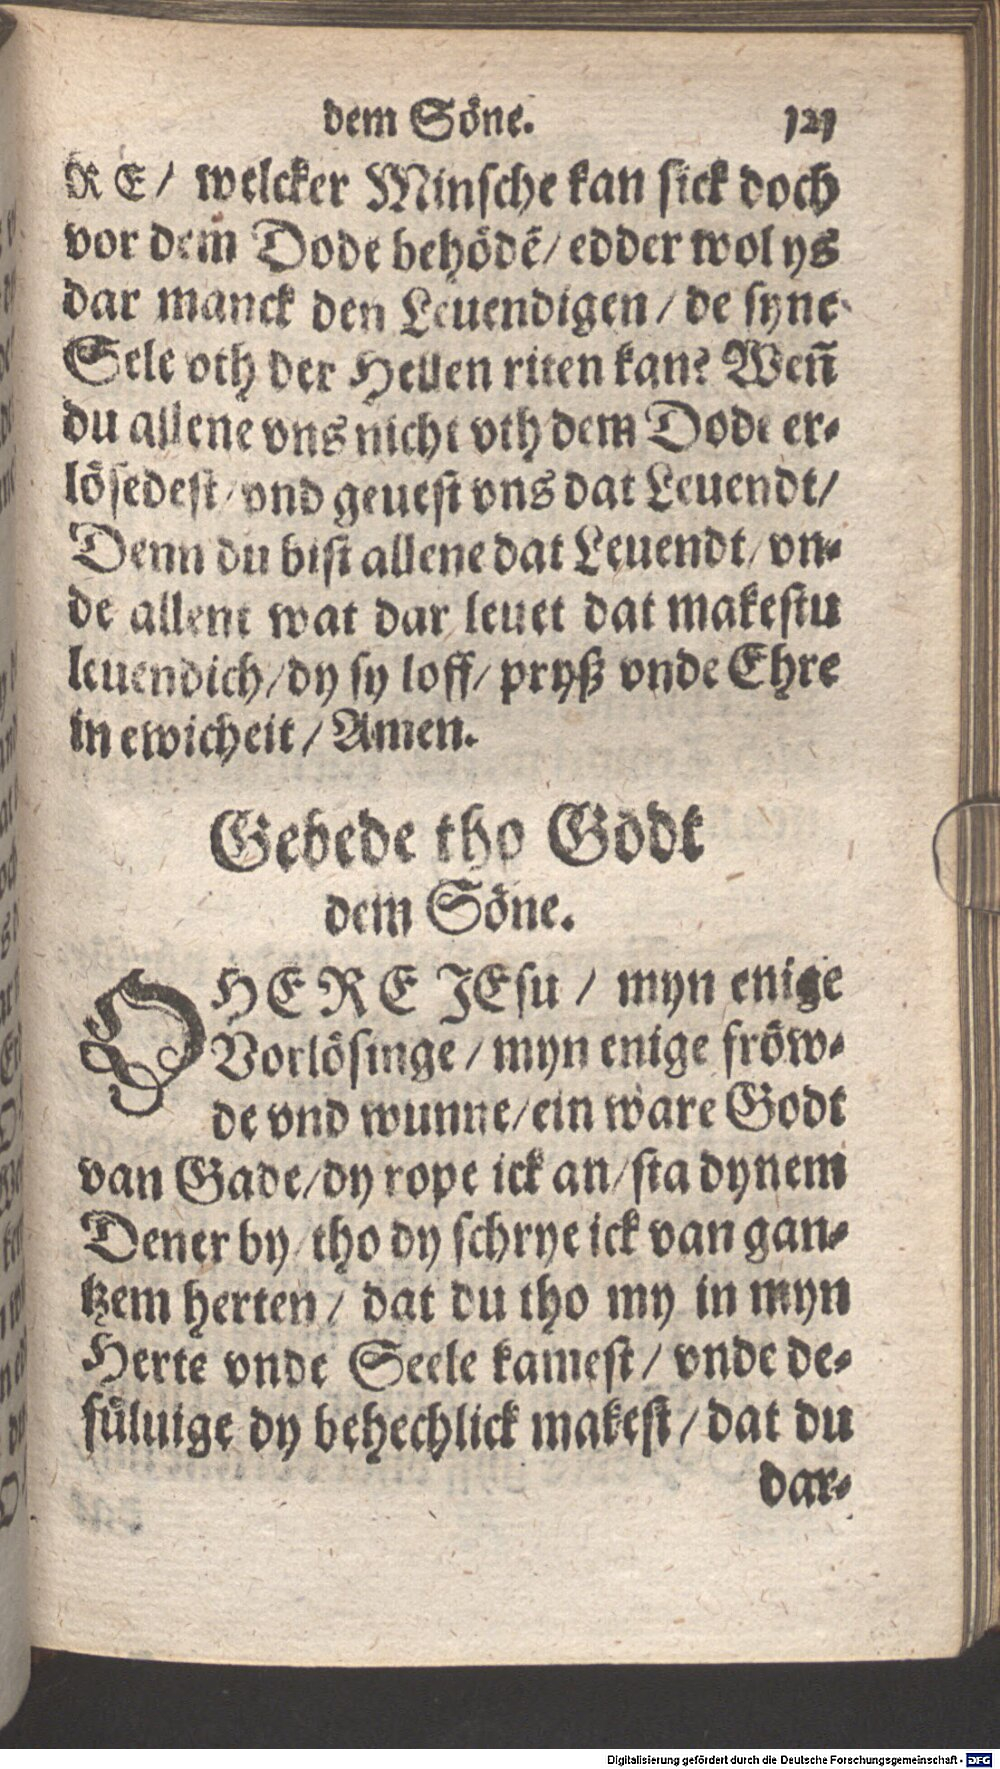 dem Söne. 121
RE/ welcker Minsche kan sick doch
vor dem Dode behödē/ edder wol ys
dar manck den Leuendigen/ de syne
Sele vth der Hellen riten kan? Weñ
du allene vns nicht vth dem Dode er-
lösedest/ vnd geuest vns dat Leuendt/
Denn du bist allene dat Leuendt/ vn-
de allent wat dar leuet dat makestu
leuendich/ dy sy loff/ pryß vnde Ehre
in ewicheit/ Amen.
Gebede tho Godt
dem Söne.
O HERE JEsu/ myn enige
Vorlösinge/ myn enige fröw-
de vnd wunne/ ein ware Godt
van Gade/ dy rope ick an/ sta dynem
Dener by/ tho dy schrye ick van gan-
tzem herten/ dat du tho my in myn
Herte vnde Seele kamest/ vnde de-
süluige dy behechlick makest/ dat du
dar-
Digitalisierung gefördert durch die Deutsche Forschungsgemeinschaft - DFG